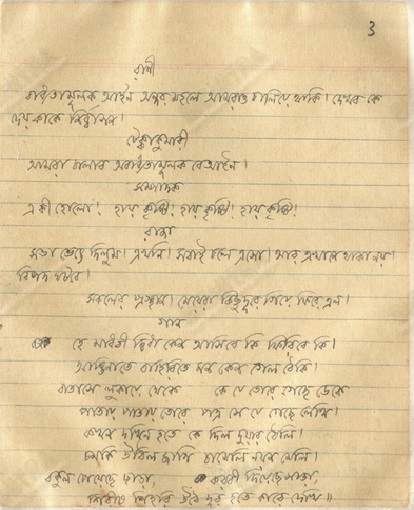 3
রাণী
বাধ্যতামূলক আইন অন্দর মহলে আমরাও চালিয়ে থাকি। দেখব কে
দেয় কাকে নির্ব্বাসন।
টেক্কাকুমারী
আমরা চালাব অবাধ্যতামূলক বেআইন।
সম্পাদক
এ কী হোলো! হায় কৃষ্টি! হায় কৃষ্টি! হায় কৃষ্টি!
রাজা
সভা ভেঙে দিলুম। এখনি সবাই চলে এসো। আর এখানে থাকা নয়।
বিপদ ঘটবে।
সকলের প্রস্থান। মেয়েরা কিছুদূর গিয়ে ফিরে এল।
গান
হে মাধবী দ্বিধা কেন আসিবে কি ফিরিবে কি।
আঙিনাতে বাহিরিতে মন কেন গেল ঠেকি।
বাতাসে লুকায়ে থেকে কে যে তোরে গেছে ডেকে
পাতায় পাতায় তোরে পত্র সে যে গেছে লেখি।
কখন দখিন হতে কে দিল দুয়ার ঠেলি।
চমকি উঠিল জাগি চামেলি নয়ন মেলি।
বকুল পেয়েছে ছাড়া, করবী দিয়েছে সাড়া,
শিরীষ শিহরি উঠে দূর হতে কারে দেখি॥